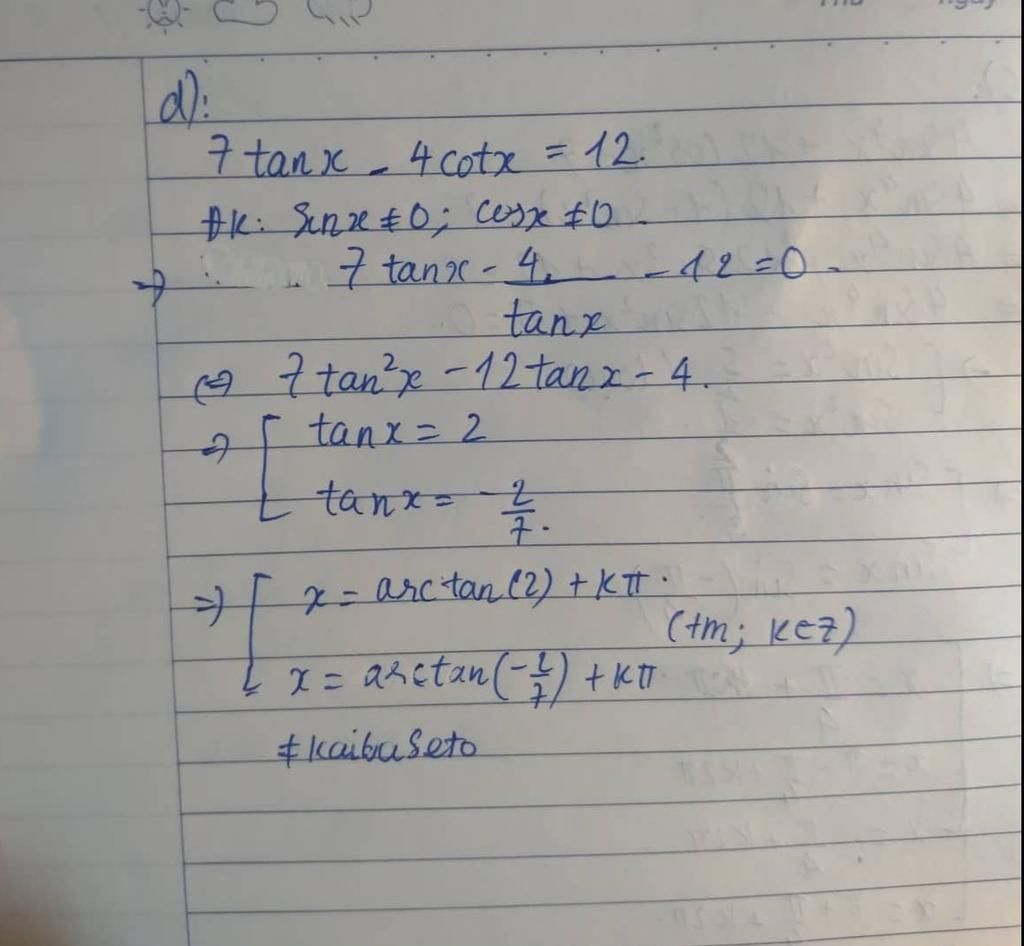 d):
7 tanx - 4cotx = 12.
ĐK: Sinx ≠ 0; cosx ≠ 0.
=> 7 tanx - 4/tanx - 12 = 0.
<=> 7 tan²x - 12 tanx - 4.
=> [ tanx = 2
tanx = -2/7.
=> [ x = arctan(2) + kπ.
(tm; k∈Z)
x = arctan(-2/7) + kπ
#kaibaSeto